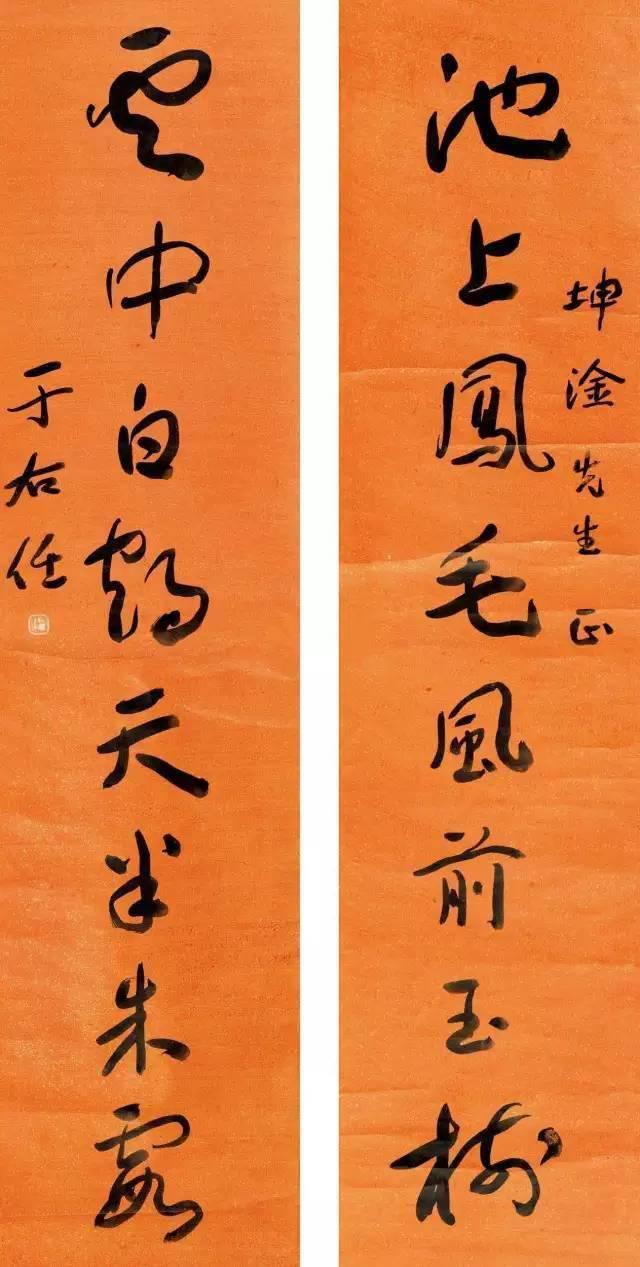 坤淦先生正
池上鳳毛風前玉樹
雲中白鶴天半朱霞
于右任